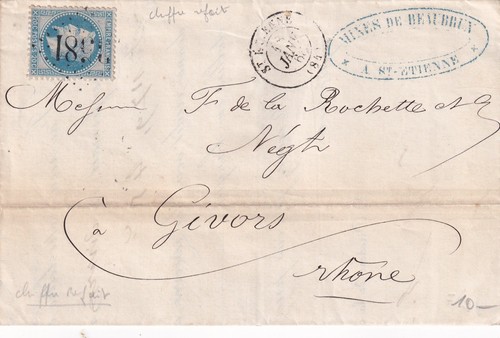 chiffre refait
MINES DE BEAUBRUN
A ST-ETIENNE
ST ETIENNE
JANV
(84)
Messieurs F. de la Rochette et
Négts
à Givors
rhône
chiffre refait
10-